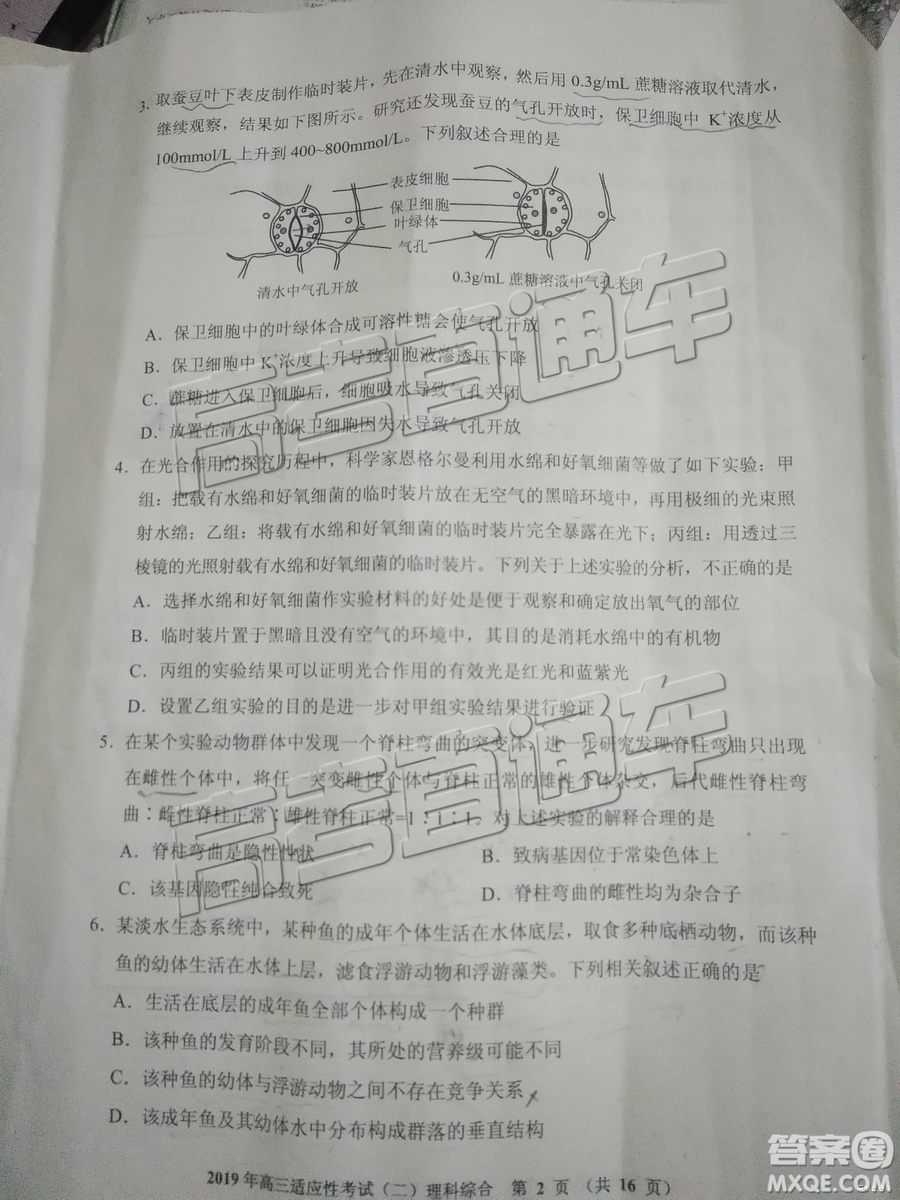 3. 取蚕豆叶下表皮制作临时装片，先在清水中观察，然后用 0.3g/mL 蔗糖溶液取代清水，
继续观察，结果如下图所示。研究还发现蚕豆的气孔开放时，保卫细胞中 K⁺浓度从
100mmol/L 上升到 400~800mmol/L。下列叙述合理的是
表皮细胞
保卫细胞
叶绿体
气孔
清水中气孔开放
0.3g/mL 蔗糖溶液中气孔关闭
A．保卫细胞中的叶绿体合成可溶性糖会使气孔开放
B．保卫细胞中 K⁺浓度上升导致细胞液渗透压下降
C．蔗糖进入保卫细胞后，细胞吸水导致气孔关闭
D．放置在清水中的保卫细胞因失水导致气孔开放
4．在光合作用的探究历程中，科学家恩格尔曼利用水绵和好氧细菌等做了如下实验：甲
组：把载有水绵和好氧细菌的临时装片放在无空气的黑暗环境中，再用极细的光束照
射水绵；乙组：将载有水绵和好氧细菌的临时装片完全暴露在光下；丙组：用透过三
棱镜的光照射载有水绵和好氧细菌的临时装片。下列关于上述实验的分析，不正确的是
A．选择水绵和好氧细菌作实验材料的好处是便于观察和确定放出氧气的部位
B．临时装片置于黑暗且没有空气的环境中，其目的是消耗水绵中的有机物
C．丙组的实验结果可以证明光合作用的有效光是红光和蓝紫光
D．设置乙组实验的目的是进一步对甲组实验结果进行验证
5．在某个实验动物群体中发现一个脊柱弯曲的突变体，进一步研究发现脊柱弯曲只出现
在雌性个体中，将任一突变雌性个体与脊柱正常的雄性个体杂交，后代雌性脊柱弯
曲∶雌性脊柱正常∶雄性脊柱正常=1∶1∶1。对上述实验的解释合理的是
A．脊柱弯曲是隐性性状
B．致病基因位于常染色体上
C．该基因隐性纯合致死
D．脊柱弯曲的雌性均为杂合子
6．某淡水生态系统中，某种鱼的成年个体生活在水体底层，取食多种底栖动物，而该种
鱼的幼体生活在水体上层，滤食浮游动物和浮游藻类。下列相关叙述正确的是
A．生活在底层的成年鱼全部个体构成一个种群
B．该种鱼的发育阶段不同，其所处的营养级可能不同
C．该种鱼的幼体与浮游动物之间不存在竞争关系
D．该成年鱼及其幼体水中分布构成群落的垂直结构
2019 年高三适应性考试（二）理科综合 第 2 页 （共 16 页）
高考直通车
高考直通车
答案圈